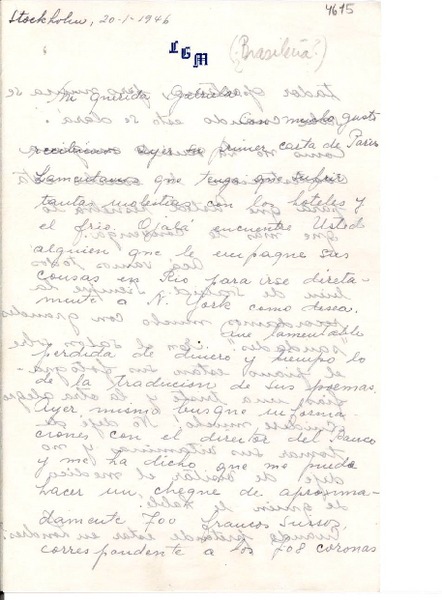 Stockholm, 20-1-1946
4615
LGM
(¿Brasileña?)
Mi querida Gabriela
Con mucho gusto
recibimos ayer su primer carta de Paris
Lamentamos que tenga que sufrir
tantas molestias con los hoteles y
el frio. Ojalá encuentre Usted
alguien que le empaque sus
cousas en Rio para irse direta-
mente a N. York como desea.
Que lamentable
perdida de dinero y tiempo lo
de la traducion de sus poemas.
Ayer mismo busque informa-
ciones con el director del Banco
y me ha dicho que me puede
hacer un cheque de aproxima-
damente 700 francos Suissos,
correspondente a los 708 coronas